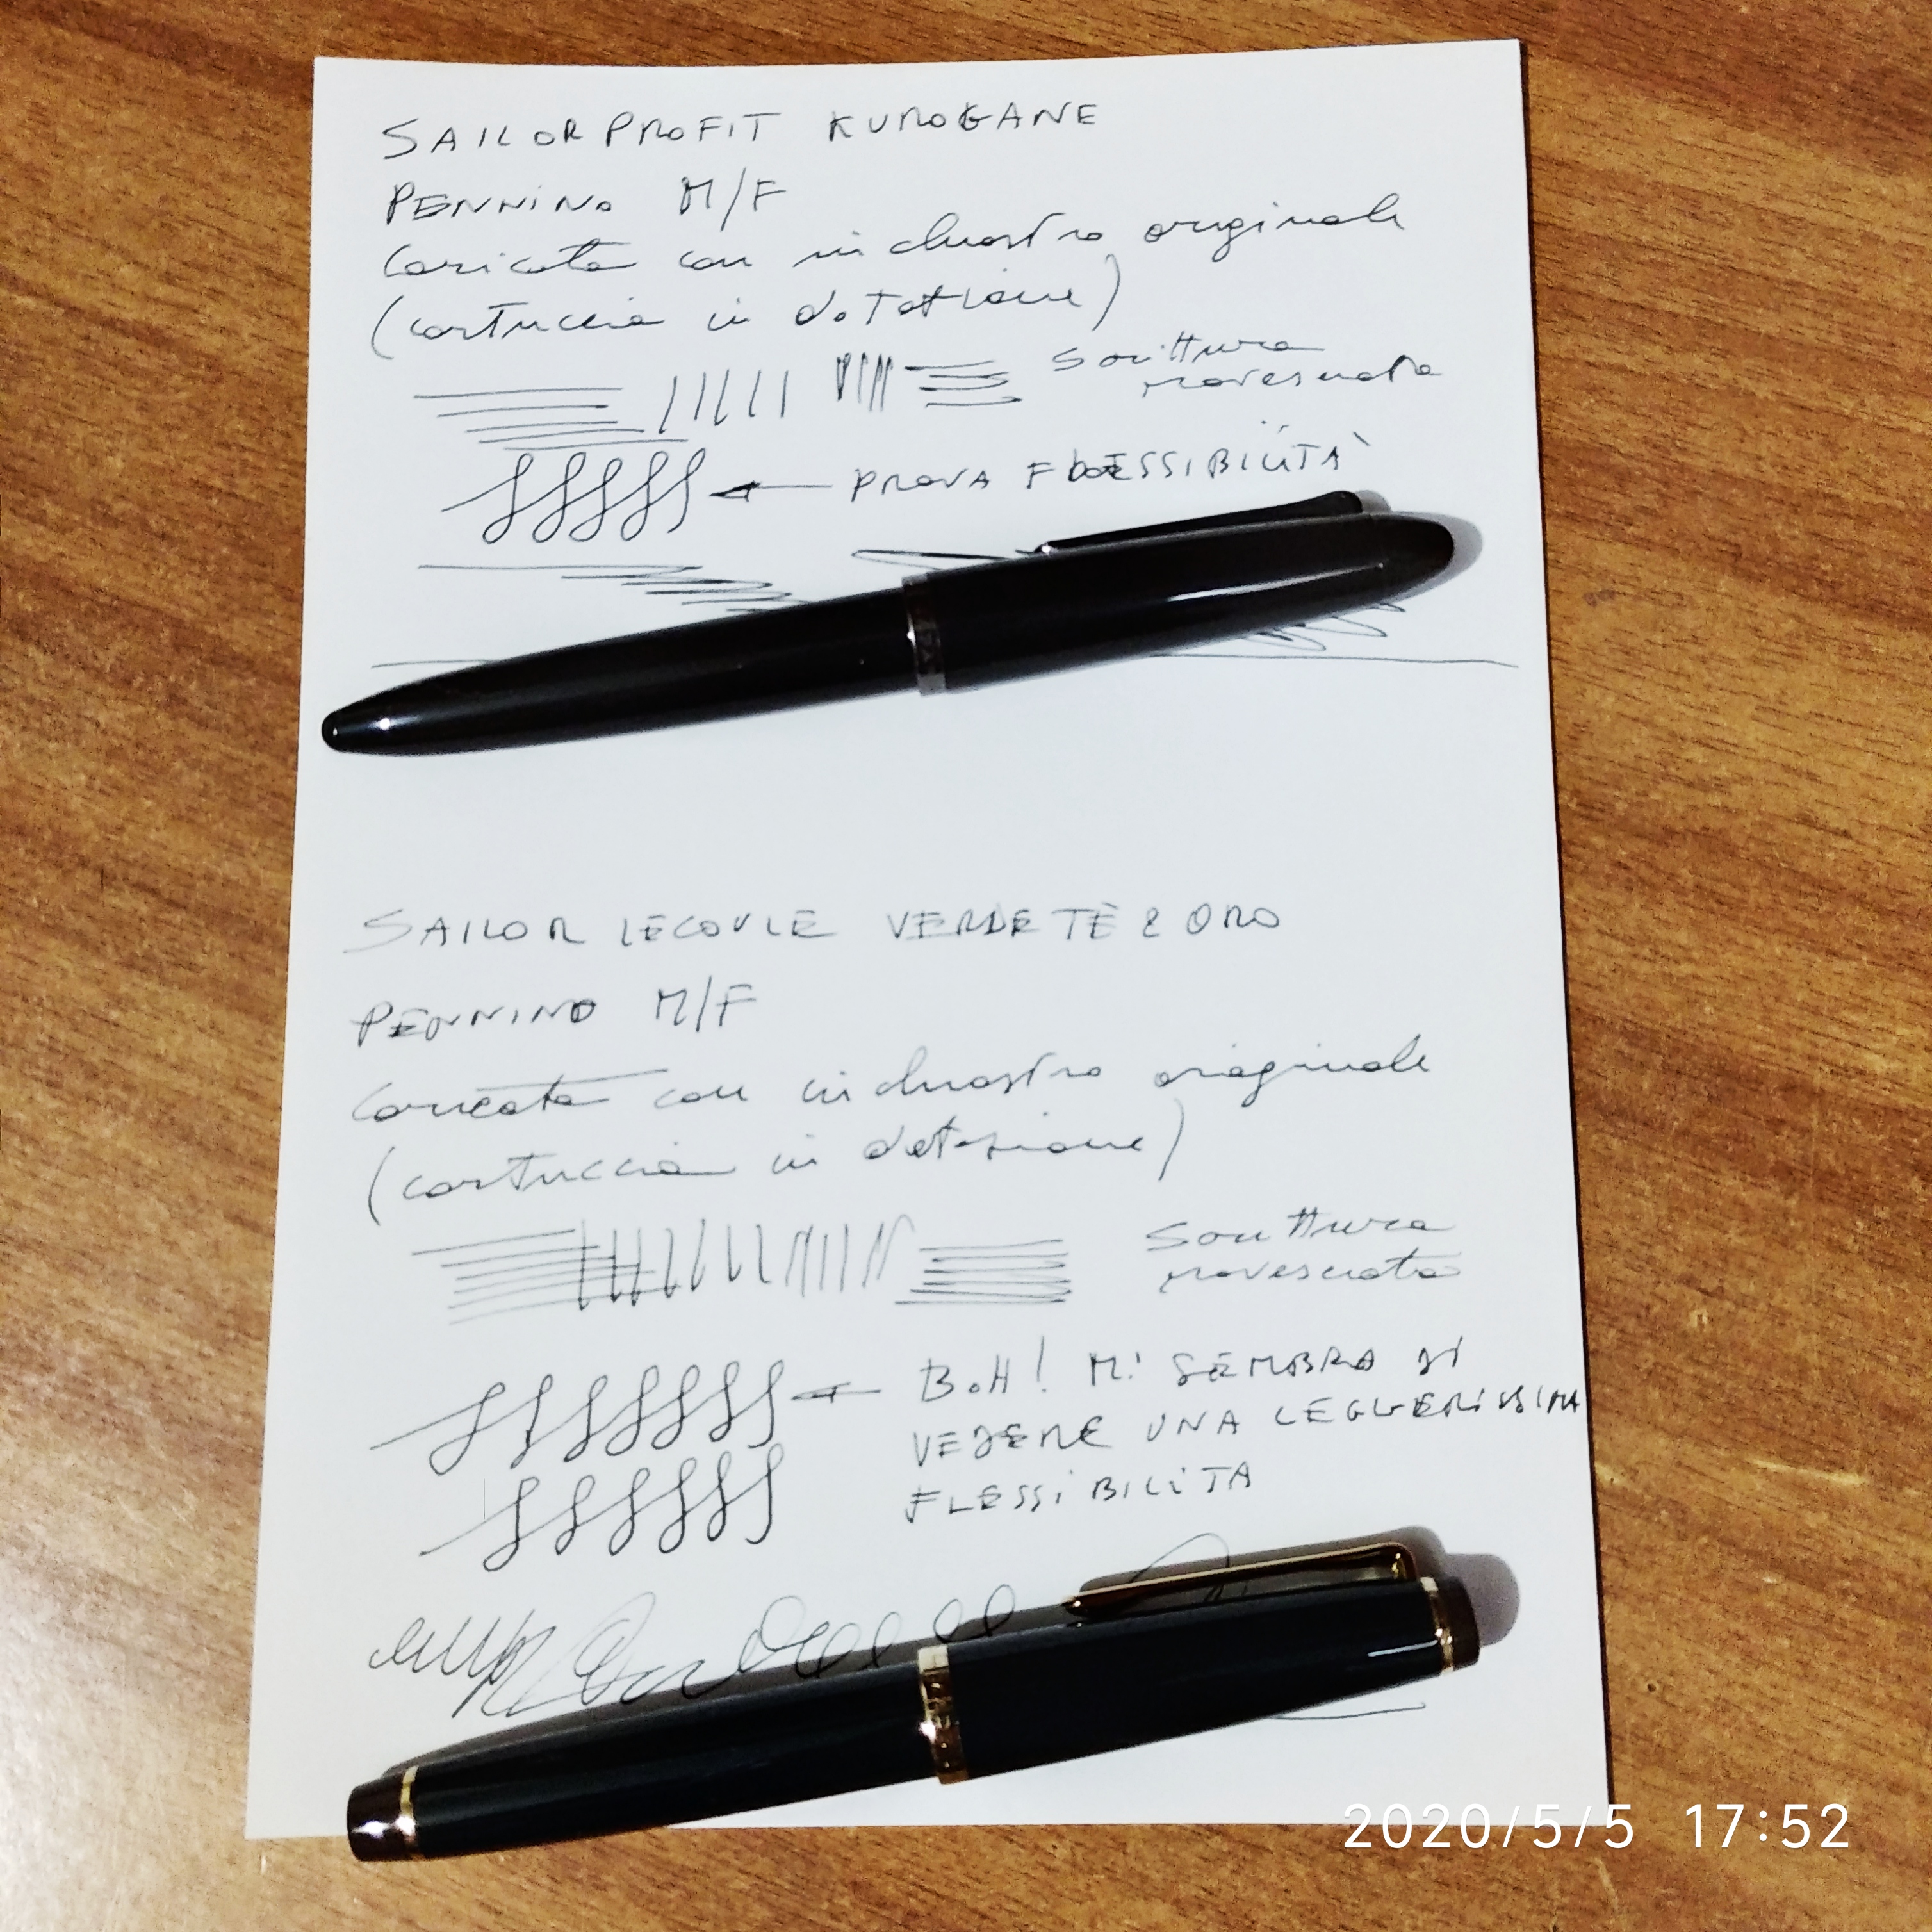 SAILOR PROFIT KUROGANE
PENNINO M/F
Caricata con inchiostro originale
(cartuccia in dotazione)
Scrittura
rovesciata
PROVA FLESSIBILITÀ
SAILOR LECOULE VERDE TÈ & ORO
PENNINO M/F
Caricata con inchiostro originale
(cartuccia in dotazione)
Scrittura
rovesciata
BOH! MI SEMBRA DI
VEDERE UNA LEGGERISSIMA
FLESSIBILITA
2020/5/5 17:52